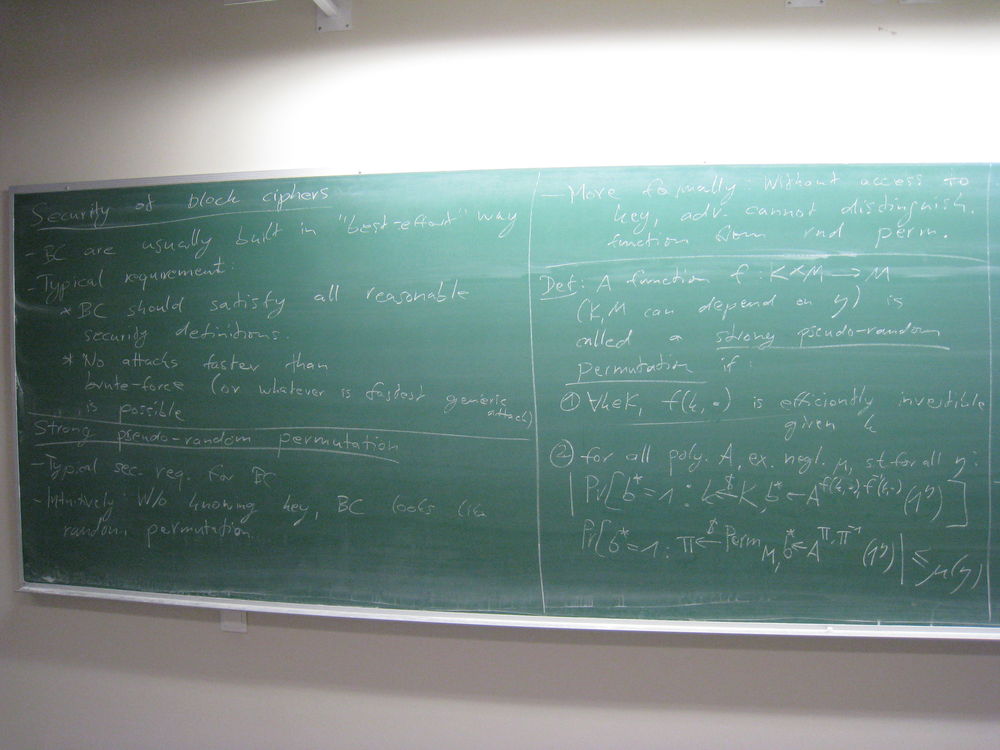 Security of block ciphers
- BC are usually built in "best-effort" way
- Typical requirement:
* BC should satisfy all reasonable
security definitions.
* No attacks faster than
brute-force (or whatever is fastest generic
attack)
is possible
Strong pseudo-random permutation
- Typical sec. req. for BC
- Intuitively: W/o knowing key, BC looks like
random permutation.
- More formally: Without access to
key, adv. cannot distinguish.
function from rnd perm.
Def: A function f : K×M → M
(K, M can depend on η) is
called a strong pseudo-random
permutation if:
① ∀k∈K, f(k, •) is efficiently invertible
given k
② for all poly. A, ex. negl. μ, st for all η:
| Pr[b*=1 : k ←$ K, b* ← A^{f(k,·), f⁻¹(k,·)} (1^η)]
Pr[b*=1 : π ←$ Perm_M, b* ← A^{π, π⁻¹} (1^η)| ≤ μ(η)